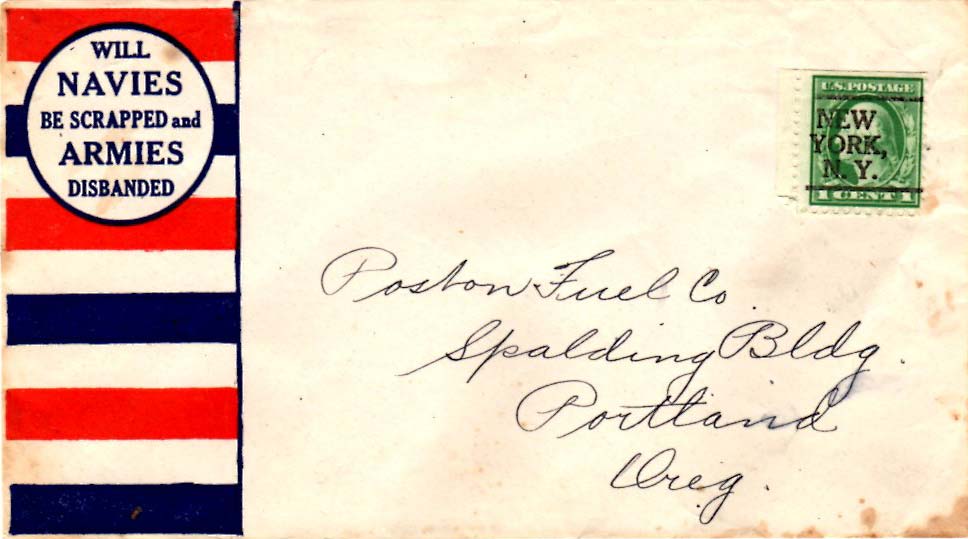 WILL
NAVIES
BE SCRAPPED and
ARMIES
DISBANDED
U.S. POSTAGE
NEW
YORK,
N. Y.
1 CENT 1
Poston Fuel Co
Spalding Bldg.
Portland
Oreg.